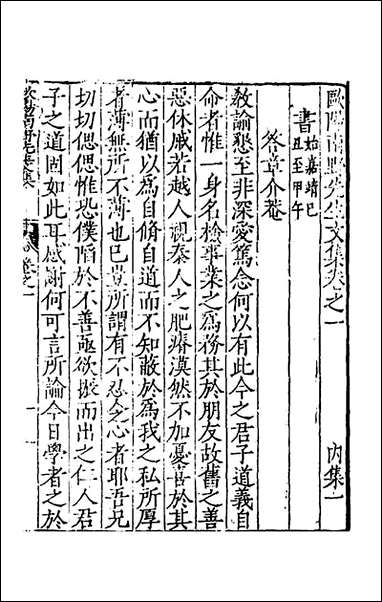 歐陽南野先生文集卷之一 內集一
書 始嘉靖己丑至甲午
答章介菴
教諭懇至非深愛篤念何以有此今之君子道義自
命者惟一身名檢事業之爲務其於朋友故舊之善
惡休戚若越人視秦人之肥瘠漠然不加憂喜於其
心而猶以為自脩自道而不知蔽於爲我之私所厚
者薄無所不薄也已豈所謂有不忍之心者耶吾兄
切切偲偲惟恐僕䧟於不善亟欲振而出之仁人君
子之道固如此耳感謝何可言所論今日學者之於
卷之一 一